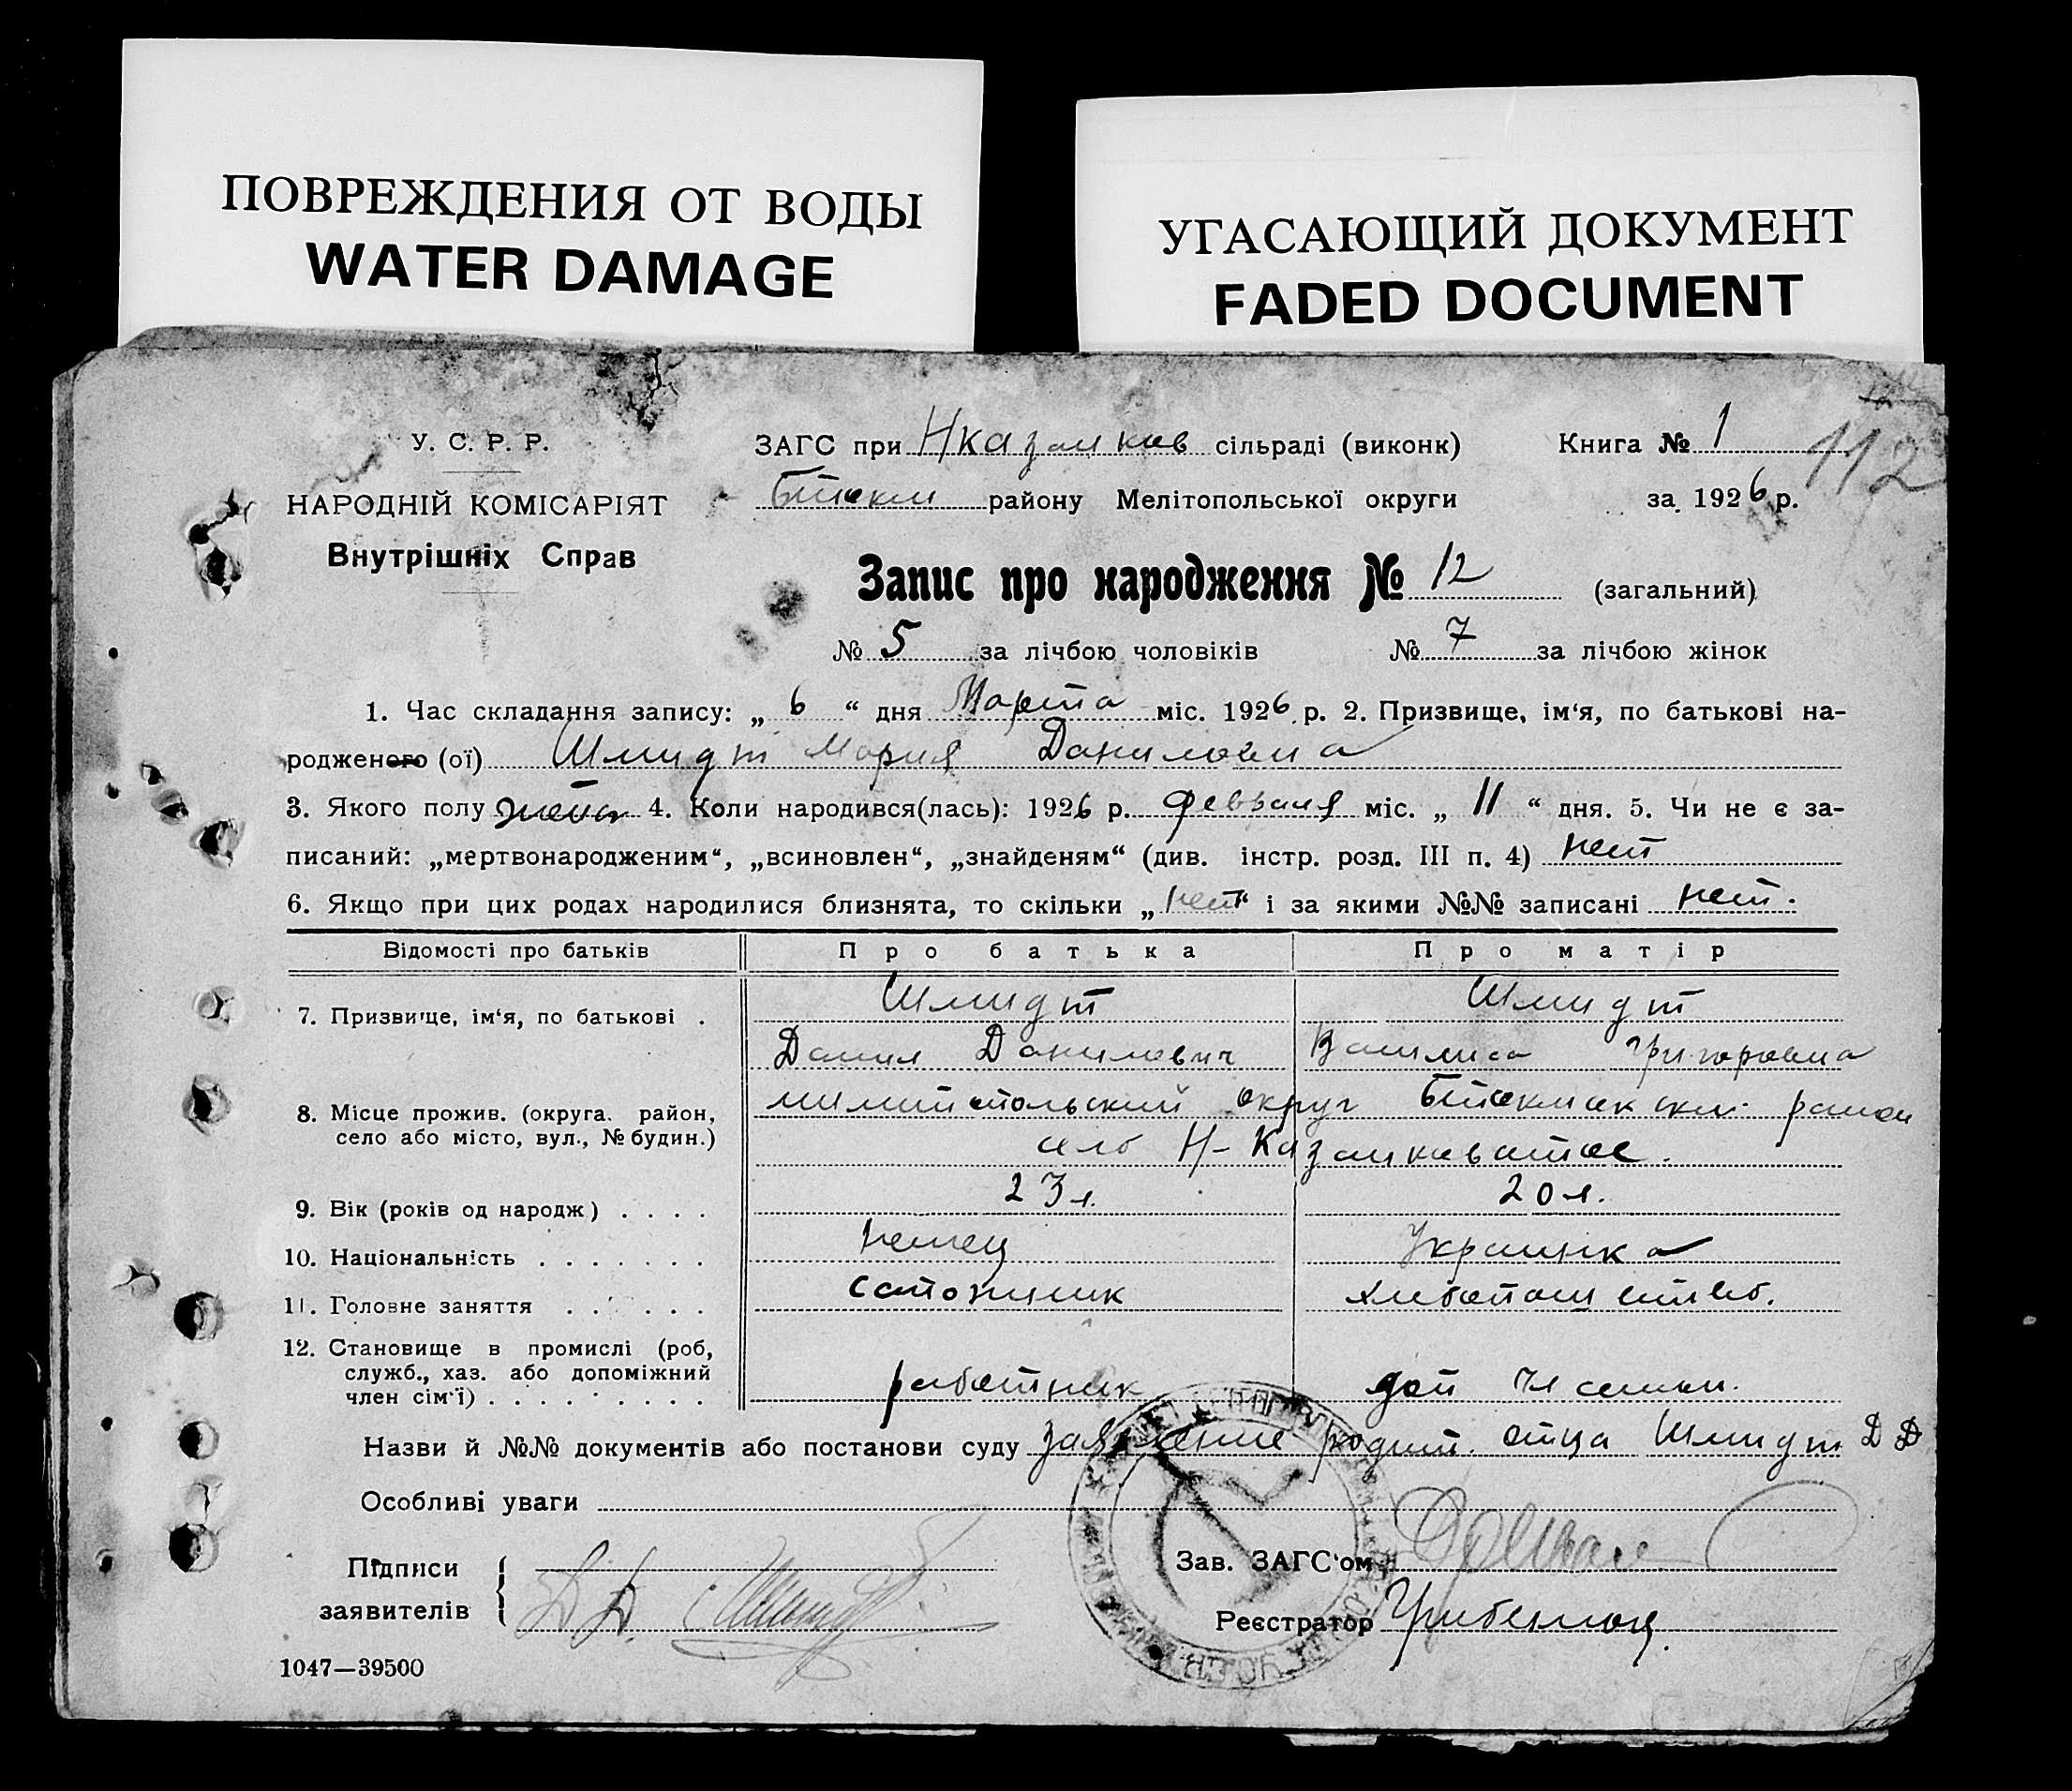 ПОВРЕЖДЕНИЯ ОТ ВОДЫ
WATER DAMAGE
УГАСАЮЩИЙ ДОКУМЕНТ
FADED DOCUMENT
У. С. Р. Р.
НАРОДНІЙ КОМІСАРІЯТ
Внутрішніх Справ
ЗАГС при Нказанков сільраді (виконк)
району Мелітопольської округи
Книга № 1
112
за 1926 р.
Запис про народження № 12 (загальний)
№ 5 за лічбою чоловіків № 7 за лічбою жінок
1. Час складання запису: „ 6 “ дня Марта міс. 1926 р. 2. Призвище, ім'я, по батькові на-
родженого (ої) Шмидт Мария Даниловна
3. Якого полу жена 4. Коли народився(лась): 1926 р. февраля міс. „ 11 “ дня. 5. Чи не є за-
писаний: „мертвонародженим“, „всиновлен“, „знайденям“ (див. інстр. розд. III п. 4) нет
6. Якщо при цих родах народилися близнята, то скільки „нет“ і за якими №№ записані нет.
Відомості про батьків Про батька Про матір
7. Призвище, ім'я, по батькові . Шмидт Шмидт
Данил Данилович Василиса Григоровна
8. Місце прожив. (округа. район, село або місто, вул., № будин.)
округ район
село Н-Казанковатое.
9. Вік (років од народж) . . . . 23 л. 20 л.
10. Національність . . . . . . . Немец Украинка
11. Головне заняття . . . . . . сапожник хлебопашество.
12. Становище в промислі (роб,
служб., хаз. або допоміжний
член сім'ї) . . . . . . . . . работник доп чл семьи.
Назви й №№ документів або постанови суду заявление родит. отца Шмидт Д Д
Особливі уваги
Підписи
заявителів
Д Д. Шмидт
Зав. ЗАГС'ом
Реєстратор
1047—39500